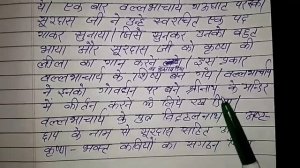 थे। एक बार वल्लभाचार्य गऊघाट पर रुके।
सूरदास जी ने उन्हें स्वरचित एक पद
गाकर सुनाया। जिसे सुनकर उनको बहुत
भाया और सूरदास जी को कृष्ण की
लीला का गान करने इस प्रकार
वल्लभाचार्य के शिष्य बन गये। वल्लभाचार्य
ने इनको गोवर्धन पर बने श्रीनाथ के मंदिर
में कीर्तन करने के लिये रख
वल्लभाचार्य के पुत्र विट्ठलनाथ
छाप के नाम से सूरदास सहित
कृष्ण-भक्त कवियों का संगठन